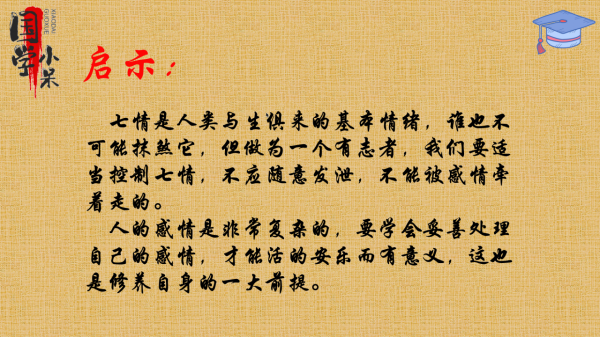 国学
小呆
XIAODAI
GUOXUE
启示：
七情是人类与生俱来的基本情绪，谁也不
可能抹煞它，但做为一个有志者，我们要适
当控制七情，不应随意发泄，不能被感情牵
着走的。
人的感情是非常复杂的，要学会妥善处理
自己的感情，才能活的安乐而有意义，这也
是修养自身的一大前提。